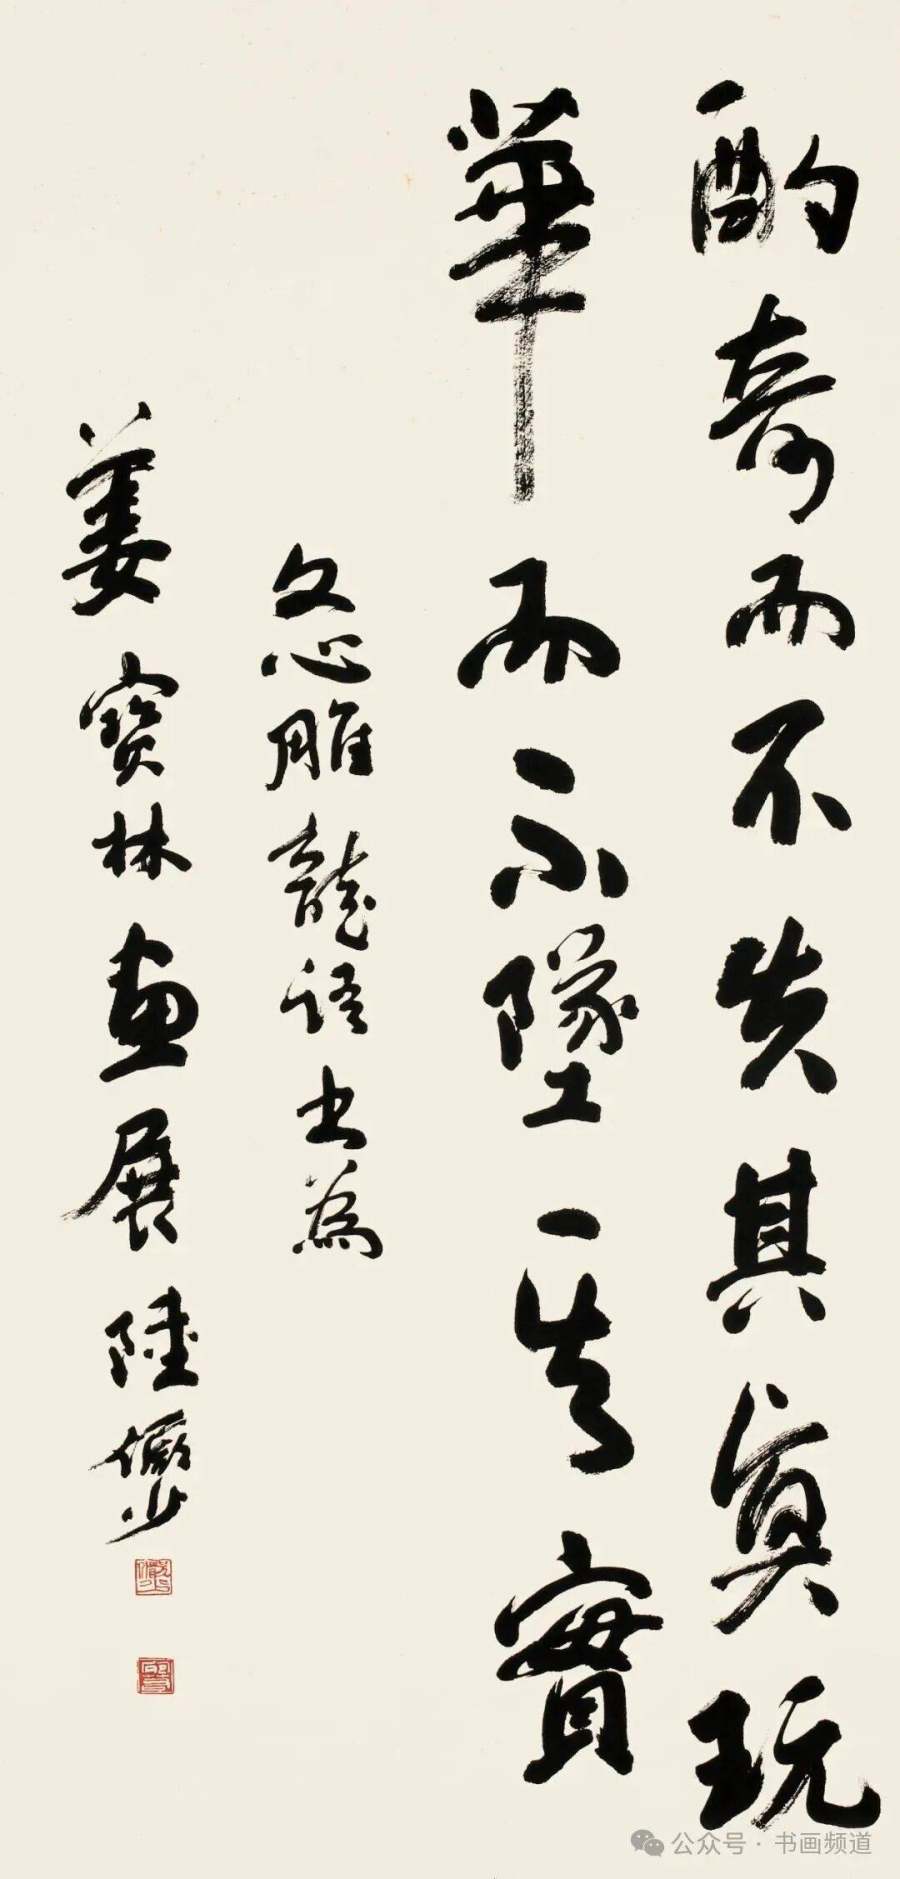 酌奇而不失其真玩
華而不墜其實
文心雕龍語書為
姜寶林畫展陸儼少
公众号·书画频道